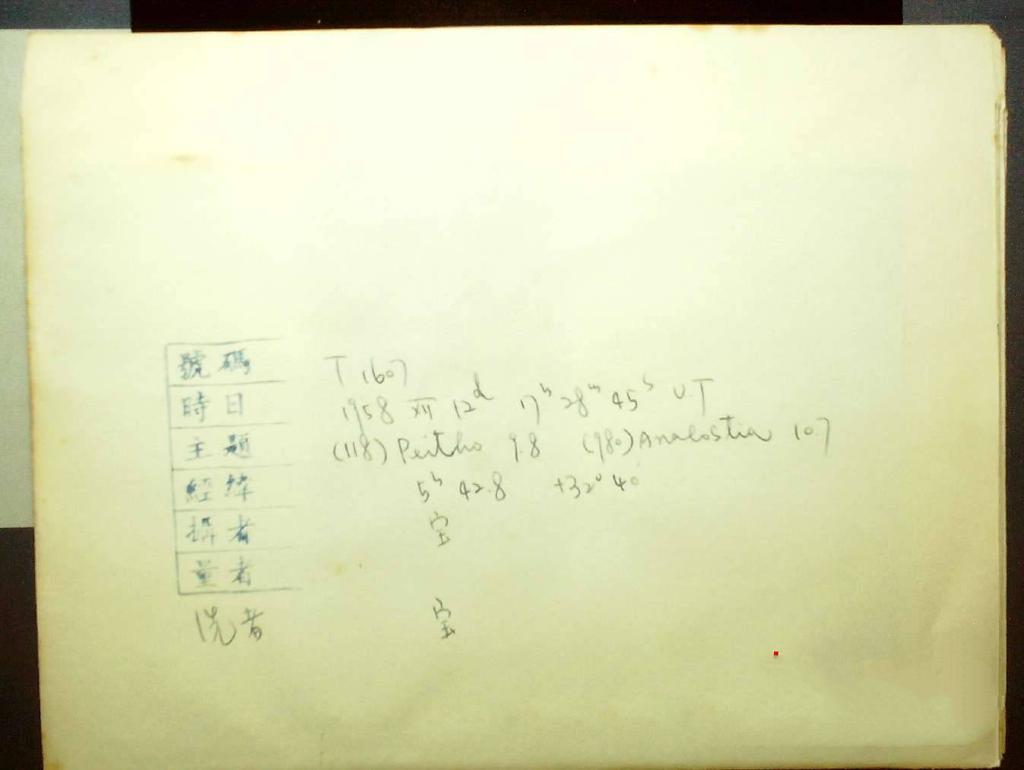 號碼 T 1607
時日 1958 XII 12d 17h 28m 45s U.T
主題 (118) Peitho 9.8 (980) Anacostia 10.7
經緯 5h 42.8 +32° 40'
攝者 宝
量者
洗者 宝